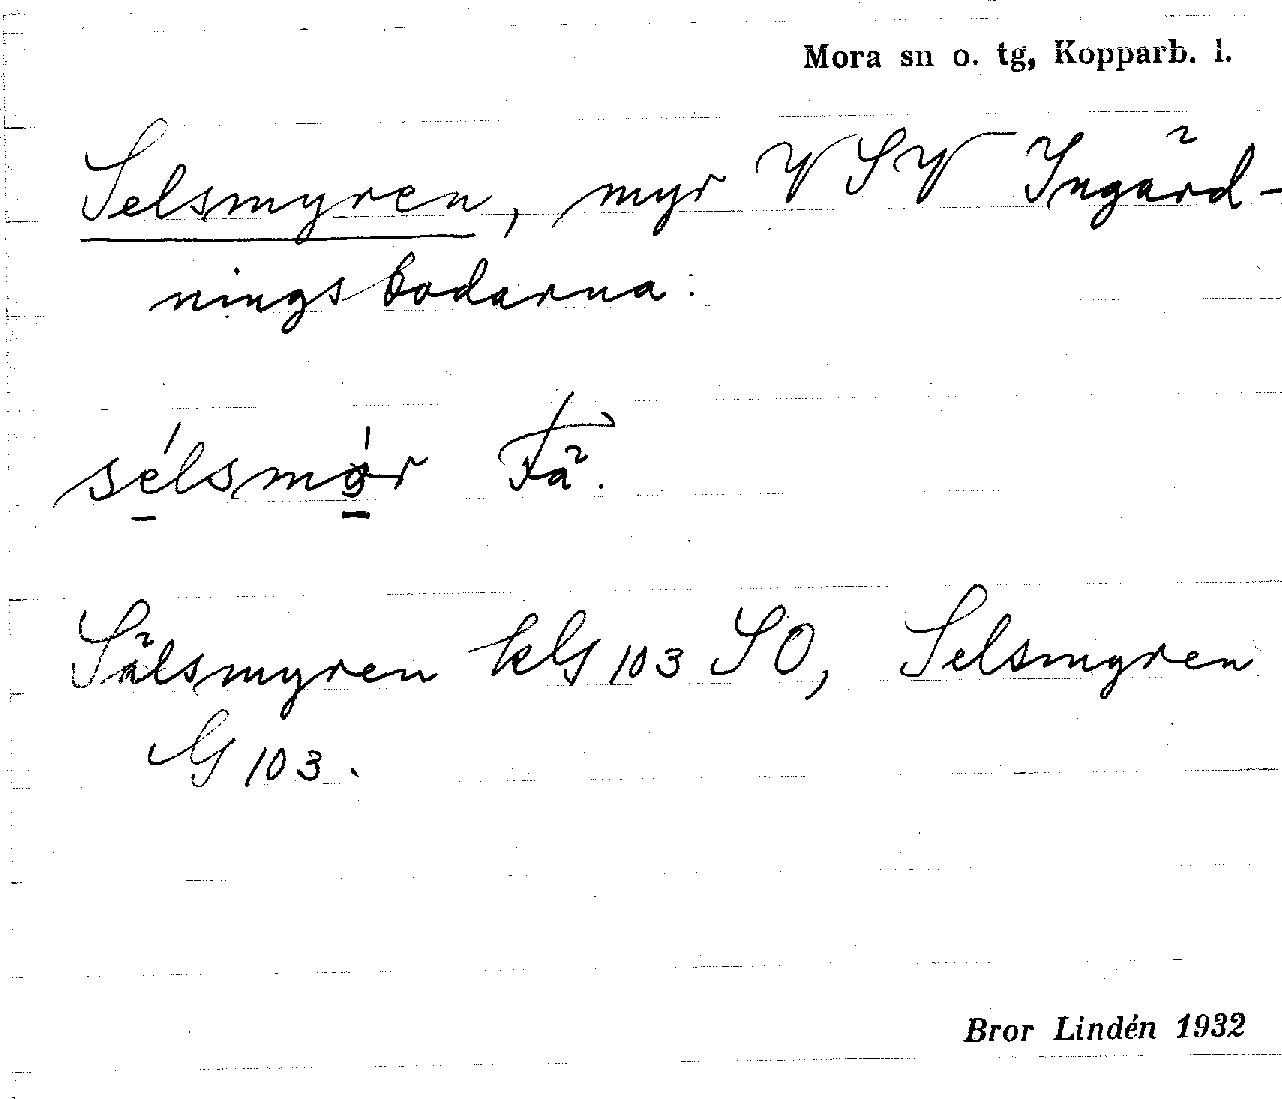 Mora sn o. tg, Kopparb. l.
Selsmyren, myr VSV Ingärd-
ningsbodarna:
Fä.
Sälsmyren kG 103 SO, Selsmyren
G 103.
Bror Lindén 1932